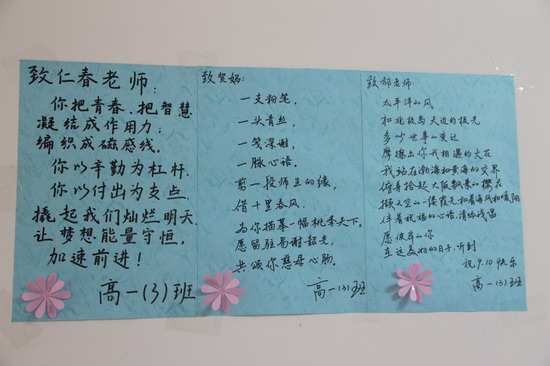 致仁春老师：
你把青春、把智慧
凝结成作用力，
编织成磁感线。
你以辛勤为杠杆，
你以付出为支点，
撬起我们灿烂明天。
让梦想能量守恒，
加速前进！
高一(3)班
致贺妈：
一支粉笔，
一头青丝，
一笺深谢，
一脉心语。
剪一段师生的缘，
借十里春风，
为你描摹一幅桃李天下。
愿留驻易谢韶光，
共颂你慈母心肠。
高一(3)班
致郝老师：
太平洋的风
和北极岛天边的极光
多少世事的变迁
摩擦出你我相遇的火花
我站在渤海和黄海的交界
俯身拾起
撷天空的一缕霞光和着海风和暖阳
伴着祝福的心语
愿彼岸的你
在这美好的日子，听到
祝9.10快乐
高一(3)班